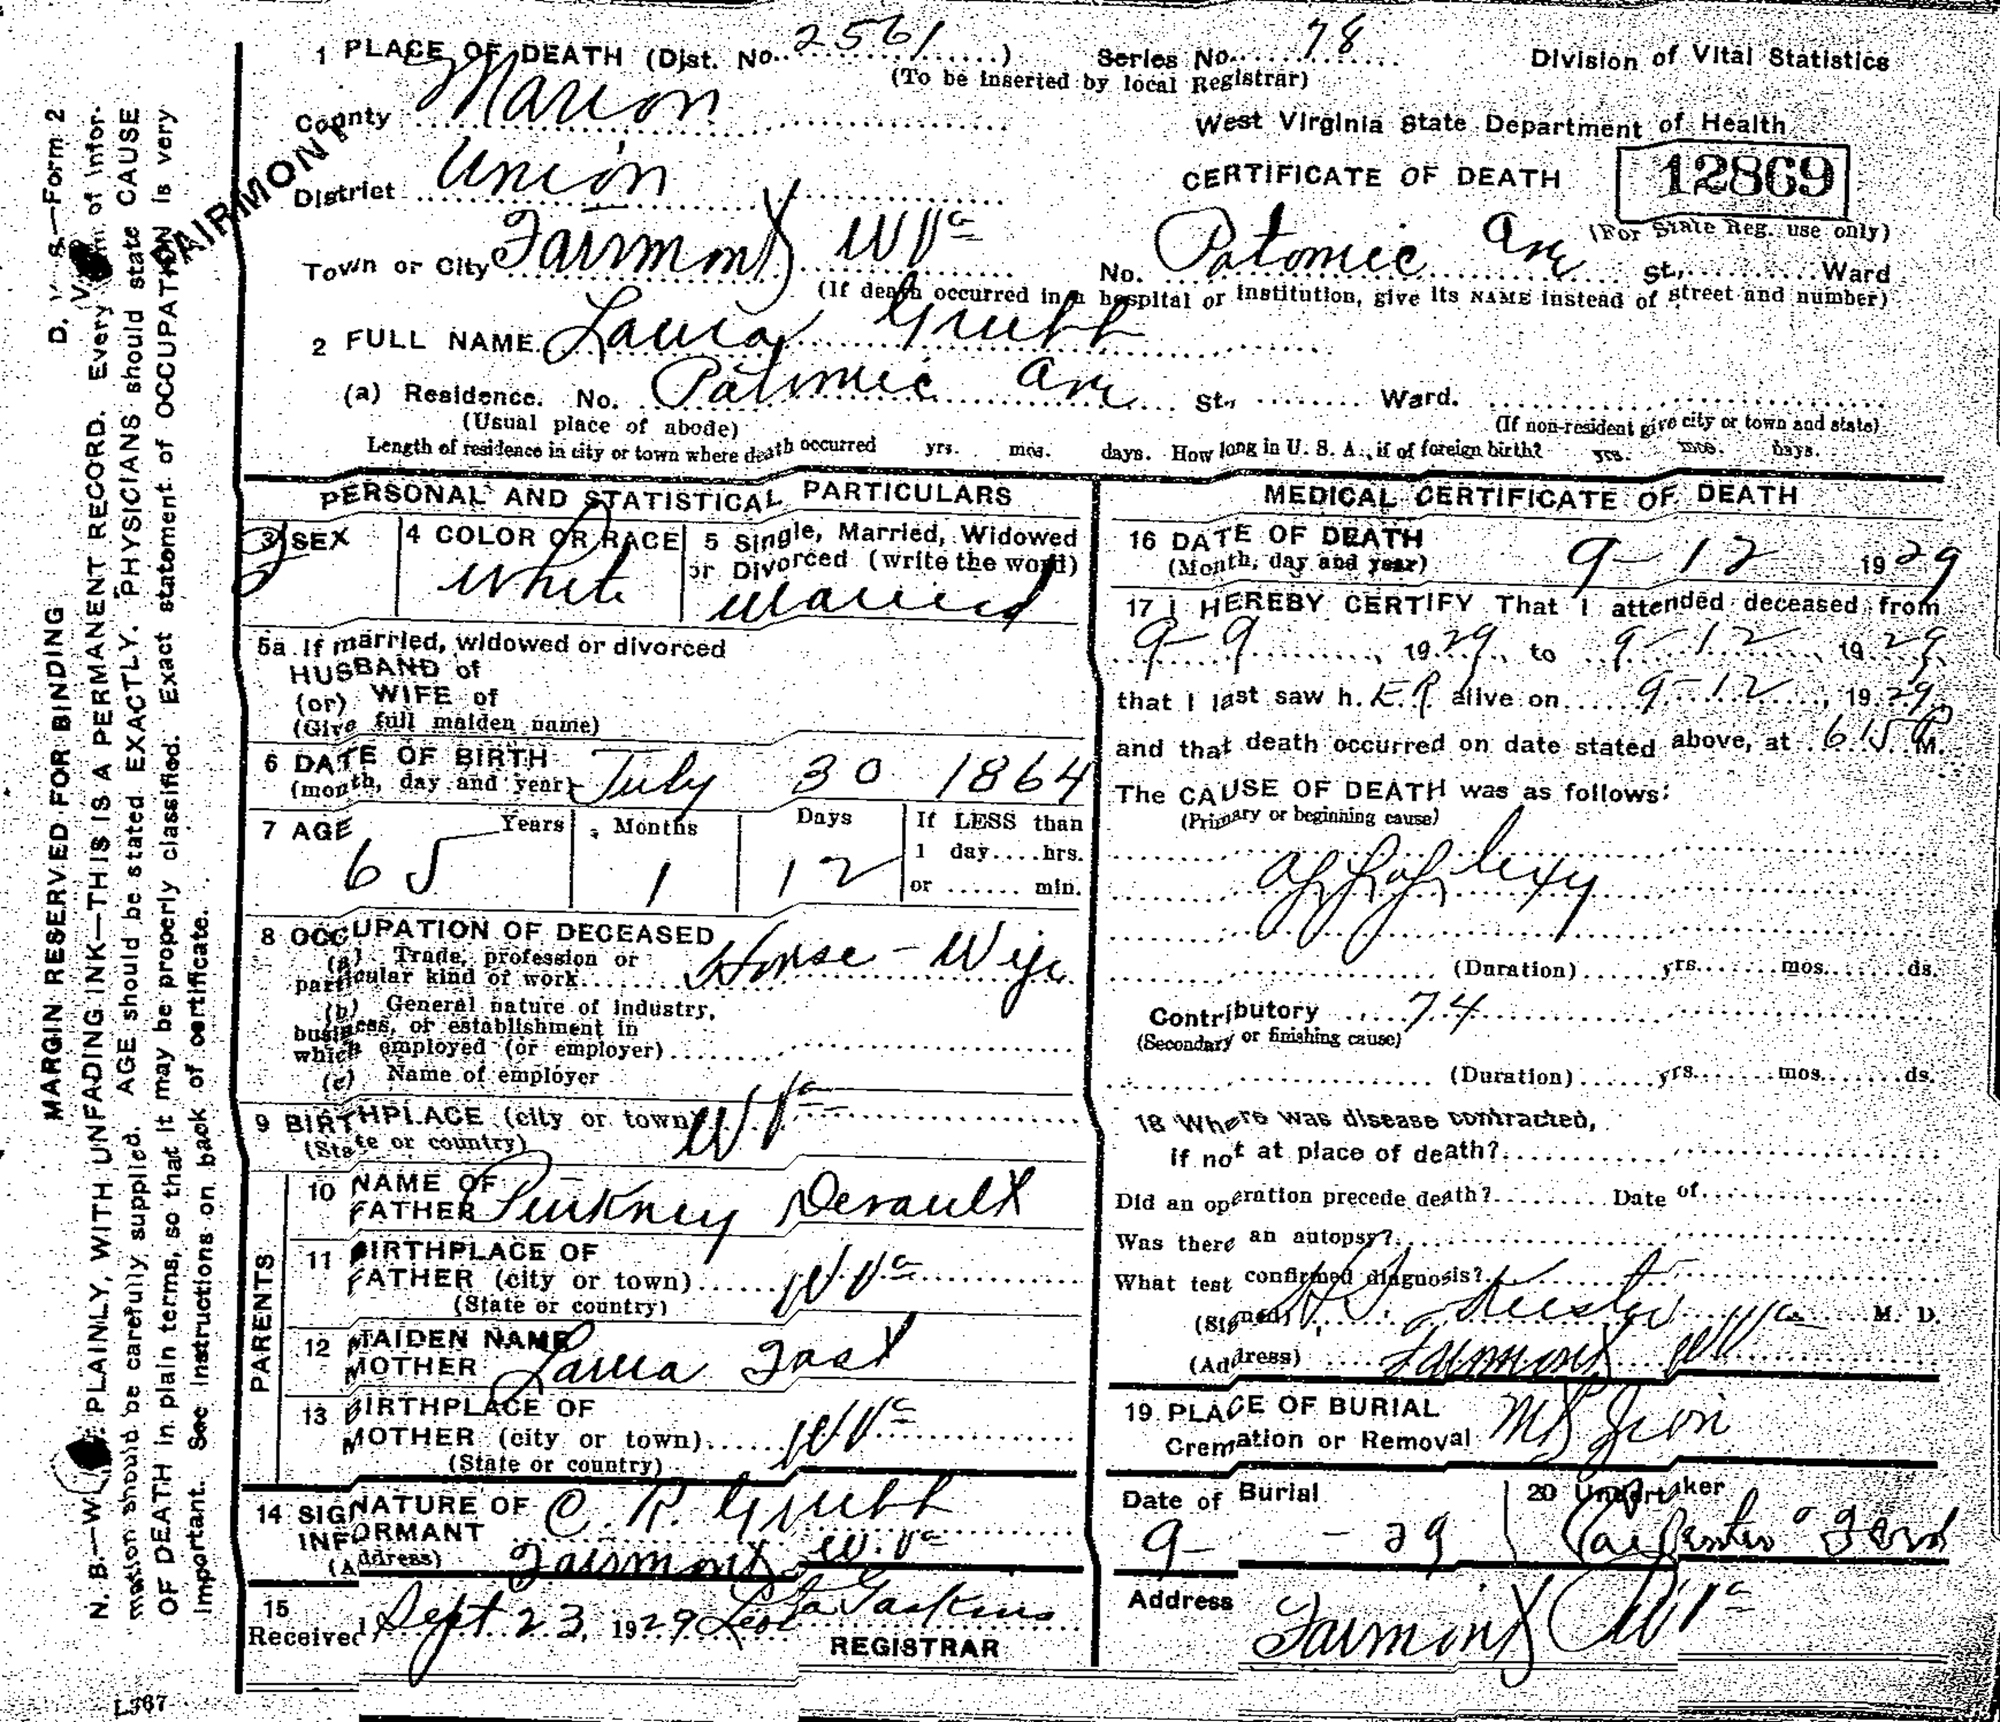 1 PLACE OF DEATH (Dist. No. 2561) Series No. 78 Division of Vital Statistics
(To be inserted by local Registrar)
County Marion West Virginia State Department of Health
FAIRMONT
District Union CERTIFICATE OF DEATH 12869
(For State Reg. use only)
Town or City Fairmont W Va No. Patomic Ave St., Ward
(If death occurred in a hospital or institution, give its NAME instead of street and number)
2 FULL NAME Laura Grubb
(a) Residence. No. Patomic Ave St., Ward.
(Usual place of abode) (If non-resident give city or town and state)
Length of residence in city or town where death occurred yrs. mos. days. How long in U. S. A., if of foreign birth? yrs. mos. days.
PERSONAL AND STATISTICAL PARTICULARS
3 SEX F
4 COLOR OR RACE White
5 Single, Married, Widowed
or Divorced (write the word)
Married
5a If married, widowed or divorced
HUSBAND of
(or) WIFE of
(Give full maiden name)
6 DATE OF BIRTH
(month, day and year) July 30 1864
7 AGE Years Months Days If LESS than
1 day....hrs.
65 1 12
or ...... min.
8 OCCUPATION OF DECEASED
(a) Trade, profession or
particular kind of work House-Wife
(b) General nature of industry,
business, or establishment in
which employed (or employer)
(c) Name of employer
9 BIRTHPLACE (city or town) W Va
(State or country)
PARENTS
10 NAME OF
FATHER Pinkney Derault
11 BIRTHPLACE OF
FATHER (city or town) W.Va
(State or country)
12 MAIDEN NAME
MOTHER Laura Fast
13 BIRTHPLACE OF
MOTHER (city or town) W Va
(State or country)
14 SIGNATURE OF
INFORMANT C. R. Grubb
(Address) Fairmont W.Va
15
Received Sept 23, 1929 Leola Gaskins
REGISTRAR
MEDICAL CERTIFICATE OF DEATH
16 DATE OF DEATH
(Month, day and year) 9-12 1929
17 I HEREBY CERTIFY That I attended deceased from
9-9, 1929, to 9-12, 1929,
that I last saw hER alive on 9-12, 1929,
and that death occurred on date stated above, at 615 P M.
The CAUSE OF DEATH was as follows:
(Primary or beginning cause)
Apoplexy
(Duration) yrs. mos. ds.
Contributory 74
(Secondary or finishing cause)
(Duration) yrs. mos. ds.
18 Where was disease contracted,
if not at place of death?
Did an operation precede death? Date of
Was there an autopsy?
What test confirmed diagnosis?
(Signed) M. D.
(Address) Fairmont W Va
19 PLACE OF BURIAL
Cremation or Removal Mt Zion
Date of Burial
9- -29
20 Undertaker
Carpenter & Ford
Address Fairmont W Va
D. V. S.—Form 2
MARGIN RESERVED FOR BINDING
N. B.—WRITE PLAINLY, WITH UNFADING INK—THIS IS A PERMANENT RECORD. Every item of infor-
mation should be carefully supplied. AGE should be stated EXACTLY. PHYSICIANS should state CAUSE
OF DEATH in plain terms, so that it may be properly classified. Exact statement of OCCUPATION is very
important. See instructions on back of certificate.
L367